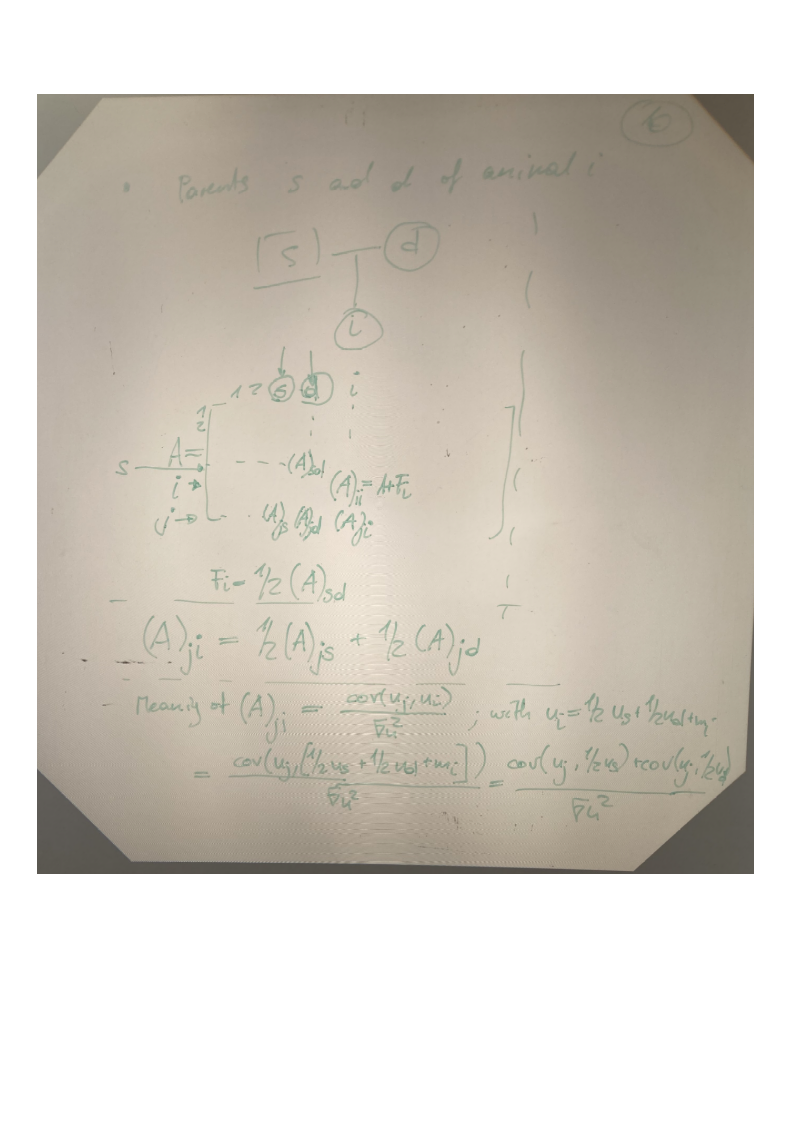 6
• Parents s and d of animal i
s d
i
1 2 s d i
1
2
A =
s - - - (A)sd
i → (A)ii = 1+Fi
j → - - (A)js (A)jd (A)ji
Fi = 1/2 (A)sd
(A)ji = 1/2 (A)js + 1/2 (A)jd
- Meaning of (A)ji = cov(uj, ui) / σu² ; with ui = 1/2 us + 1/2 ud + mi
= cov(uj, [1/2 us + 1/2 ud + mi]) / σu² = cov(uj, 1/2 us) + cov(uj, 1/2 ud) / σu²